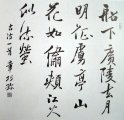 船下廣陵去月
明征虜亭山
花如繡頰江火
似流螢
古詩一首